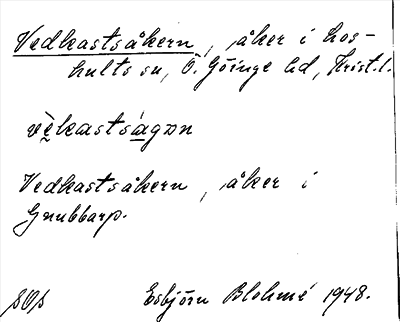 Vedkastsåkern, åker i Los-
hults sn, Ö. Göinge hd, Krist.l.
vèkastságɒn
Vedkastsåkern, åker i
Gnubbarp.
Esbjörn Blohmé 1948.